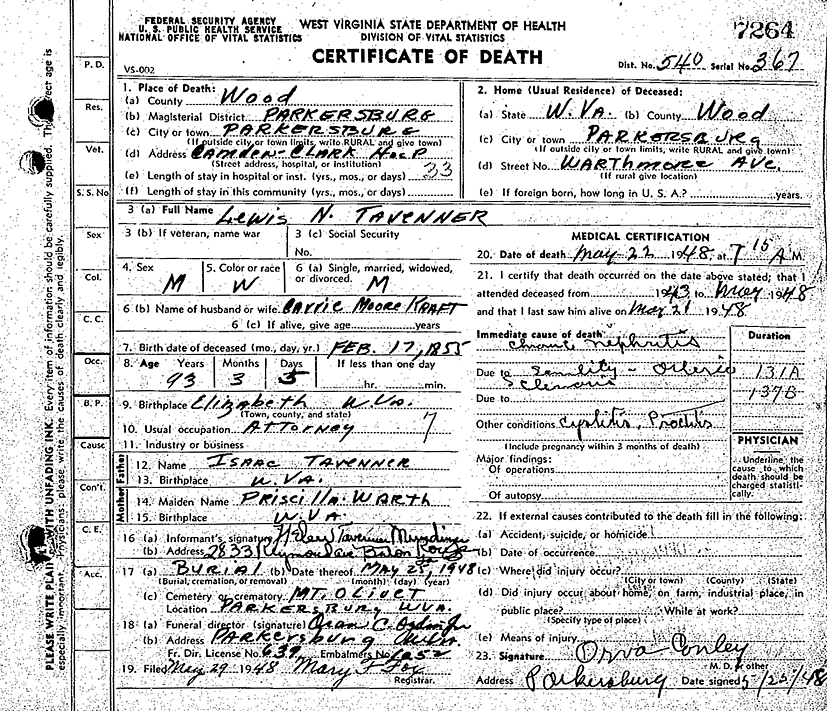 FEDERAL SECURITY AGENCY
U. S. PUBLIC HEALTH SERVICE
NATIONAL OFFICE OF VITAL STATISTICS
WEST VIRGINIA STATE DEPARTMENT OF HEALTH
DIVISION OF VITAL STATISTICS
CERTIFICATE OF DEATH
7264
VS-002
Dist. No. 540 Serial No. 367
1. Place of Death:
(a) County Wood
(b) Magisterial District PARKERSBURG
(c) City or town PARKERSBURG
(If outside city or town limits, write RURAL and give town)
(d) Address Camden-Clark Hosp
(Street address, hospital, or institution)
(e) Length of stay in hospital or inst. (yrs., mos., or days) 33
(f) Length of stay in this community (yrs., mos., or days)
2. Home (Usual Residence) of Deceased:
(a) State W. Va. (b) County Wood
(c) City or town PARKERSBURG
(If outside city or town limits, write RURAL and give town)
(d) Street No. WARTHMORE AVE.
(If rural give location)
(e) If foreign born, how long in U. S. A.? years.
3 (a) Full Name Lewis N. TAVENNER
3 (b) If veteran, name war
3 (c) Social Security
No.
4. Sex M
5. Color or race W
6 (a) Single, married, widowed,
or divorced. M
6 (b) Name of husband or wife. Carrie Moore KRAFT
6 (c) If alive, give age years
7. Birth date of deceased (mo., day, yr.) FEB. 17, 1855
8. Age Years Months Days If less than one day
93 3 5 hr. min.
9. Birthplace Elizabeth W. VA.
(Town, county, and state)
10. Usual occupation ATTORNEY 7
11. Industry or business
Father
12. Name ISAAC TAVENNER
13. Birthplace W. VA.
Mother
14. Maiden Name PRISCILLA WARTH
15. Birthplace W. VA
16 (a) Informant's signature Helen Tavenner
(b) Address 2833 Baton Rouge
17 (a) BURIAL (b) Date thereof MAY 25, 1948
(Burial, cremation, or removal) (month) (day) (year)
(c) Cemetery or crematory MT. OLIVET
Location PARKERSBURG W.VA.
18 (a) Funeral director (signature)
(b) Address Parkersburg
Fr. Dir. License No. 639 Embalmers No. 1052
19. Filed May 29 1948 Mary F Fox
Registrar.
MEDICAL CERTIFICATION
20. Date of death May 22 1948, at 7 15 A. M.
21. I certify that death occurred on the date above stated; that I
attended deceased from 1943 to May 1948
and that I last saw him alive on May 21 1948
Immediate cause of death: Duration
Chronic nephritis
Due to Senility - Arterio 131A
Sclerosis 137B
Due to
Other conditions Cystitis, Proctitis
(Include pregnancy within 3 months of death)
Major findings:
Of operations
Of autopsy
PHYSICIAN
Underline the
cause to which
death should be
charged statisti-
cally.
22. If external causes contributed to the death fill in the following:
(a) Accident, suicide, or homicide
(b) Date of occurrence
(c) Where did injury occur?
(City or town) (County) (State)
(d) Did injury occur about home, on farm, industrial place, in
public place? While at work?
(Specify type of place)
(e) Means of injury
23. Signature Orva Conley
M. D. or other
Address Parkersburg Date signed 5/25/48
P. D.
Res.
Vet.
S. S. No
Sex
Col.
C. C.
Occ.
B. P.
Cause
Con't.
C. E.
Acc.
PLEASE WRITE PLAINLY WITH UNFADING INK. Every item of information should be carefully supplied. The exact age is
especially important. Physicians: please write the causes of death clearly and legibly.